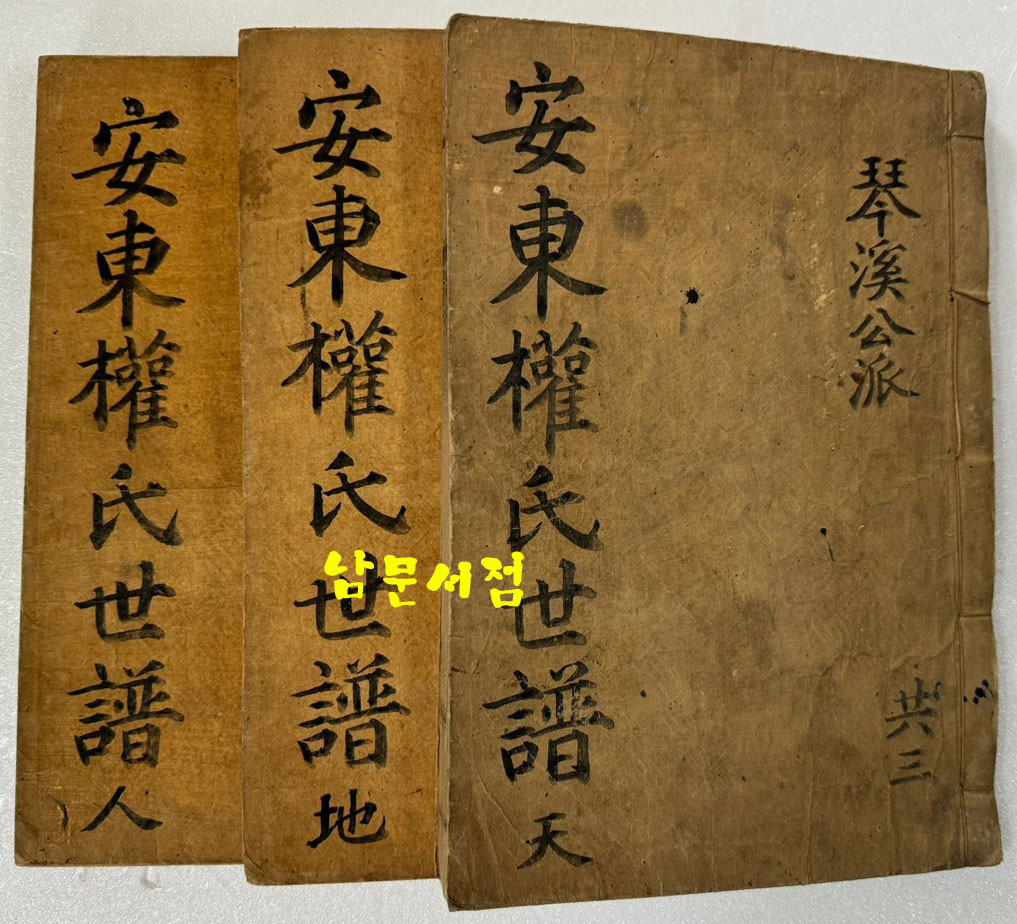 安東權氏世譜 天
琴溪公派
共三
安東權氏世譜 地
安東權氏世譜 人
남문서점